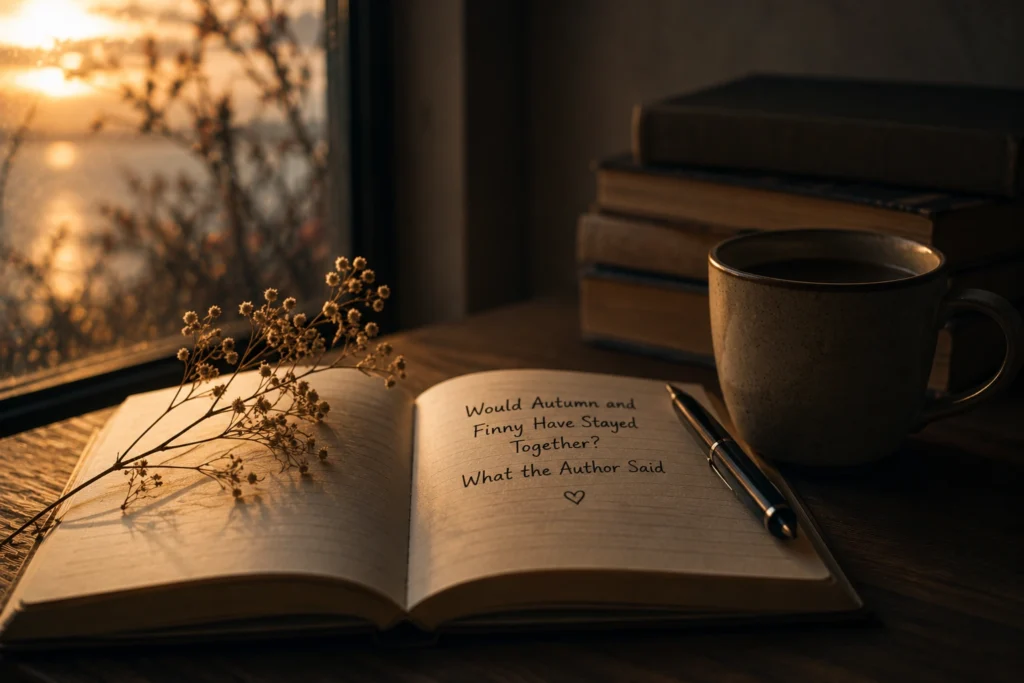 Would Autumn and
Finny Have Stayed
Together?
What the Author Said
♡